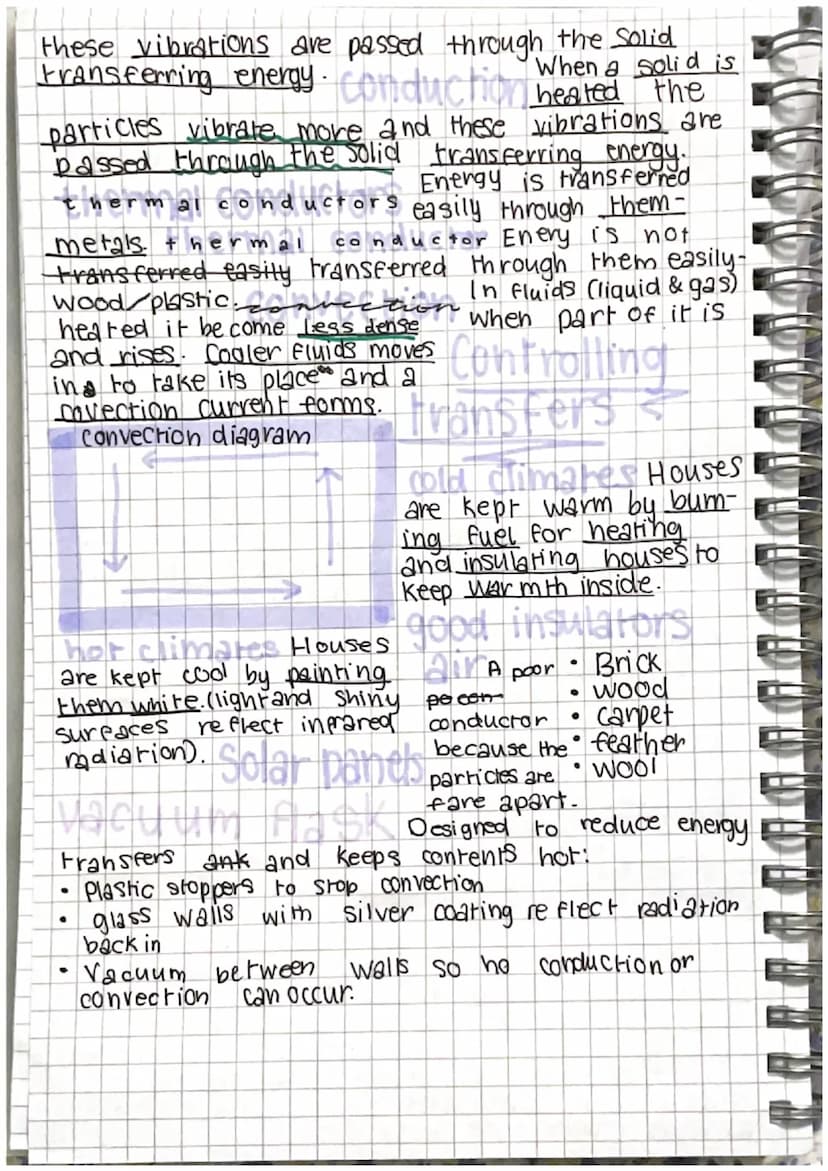 these vibrations are passed through the solid
transferring energy. conduction When a solid is
heated the
particles vibrate more and these vibrations are
passed through the solid transferring energy.
thermal conductors Energy is transferred
thermal conductors easily through them-
metals. thermal conductor Enery is not
transferred easily transferred through them easily-
wood/plastic. convection In fluids (liquid & gas)
when part of it is
heated it be come less dense
and rises. Cooler fluids moves
in to take its place and a
covection current forms.
Controlling
transfers
convection diagram
cold climates Houses
are kept warm by burn-
ing fuel for heating
and insulating houses to
keep warmth inside.
hot climates Houses
are kept cool by painting
them white. (light and shiny
surfaces reflect infrared
radiation).
good insulators
air A poor
conductor
because the
particles are
fare apart.
• Brick
• wood
• carpet
• feather
• wool
Solar panels
Vacuum flask Designed to reduce energy
transfers and keeps contents hot:
• Plastic stoppers to stop convection
• glass walls with silver coating reflect radiation
back in
• Vacuum between walls so no conduction or
convection can occur.